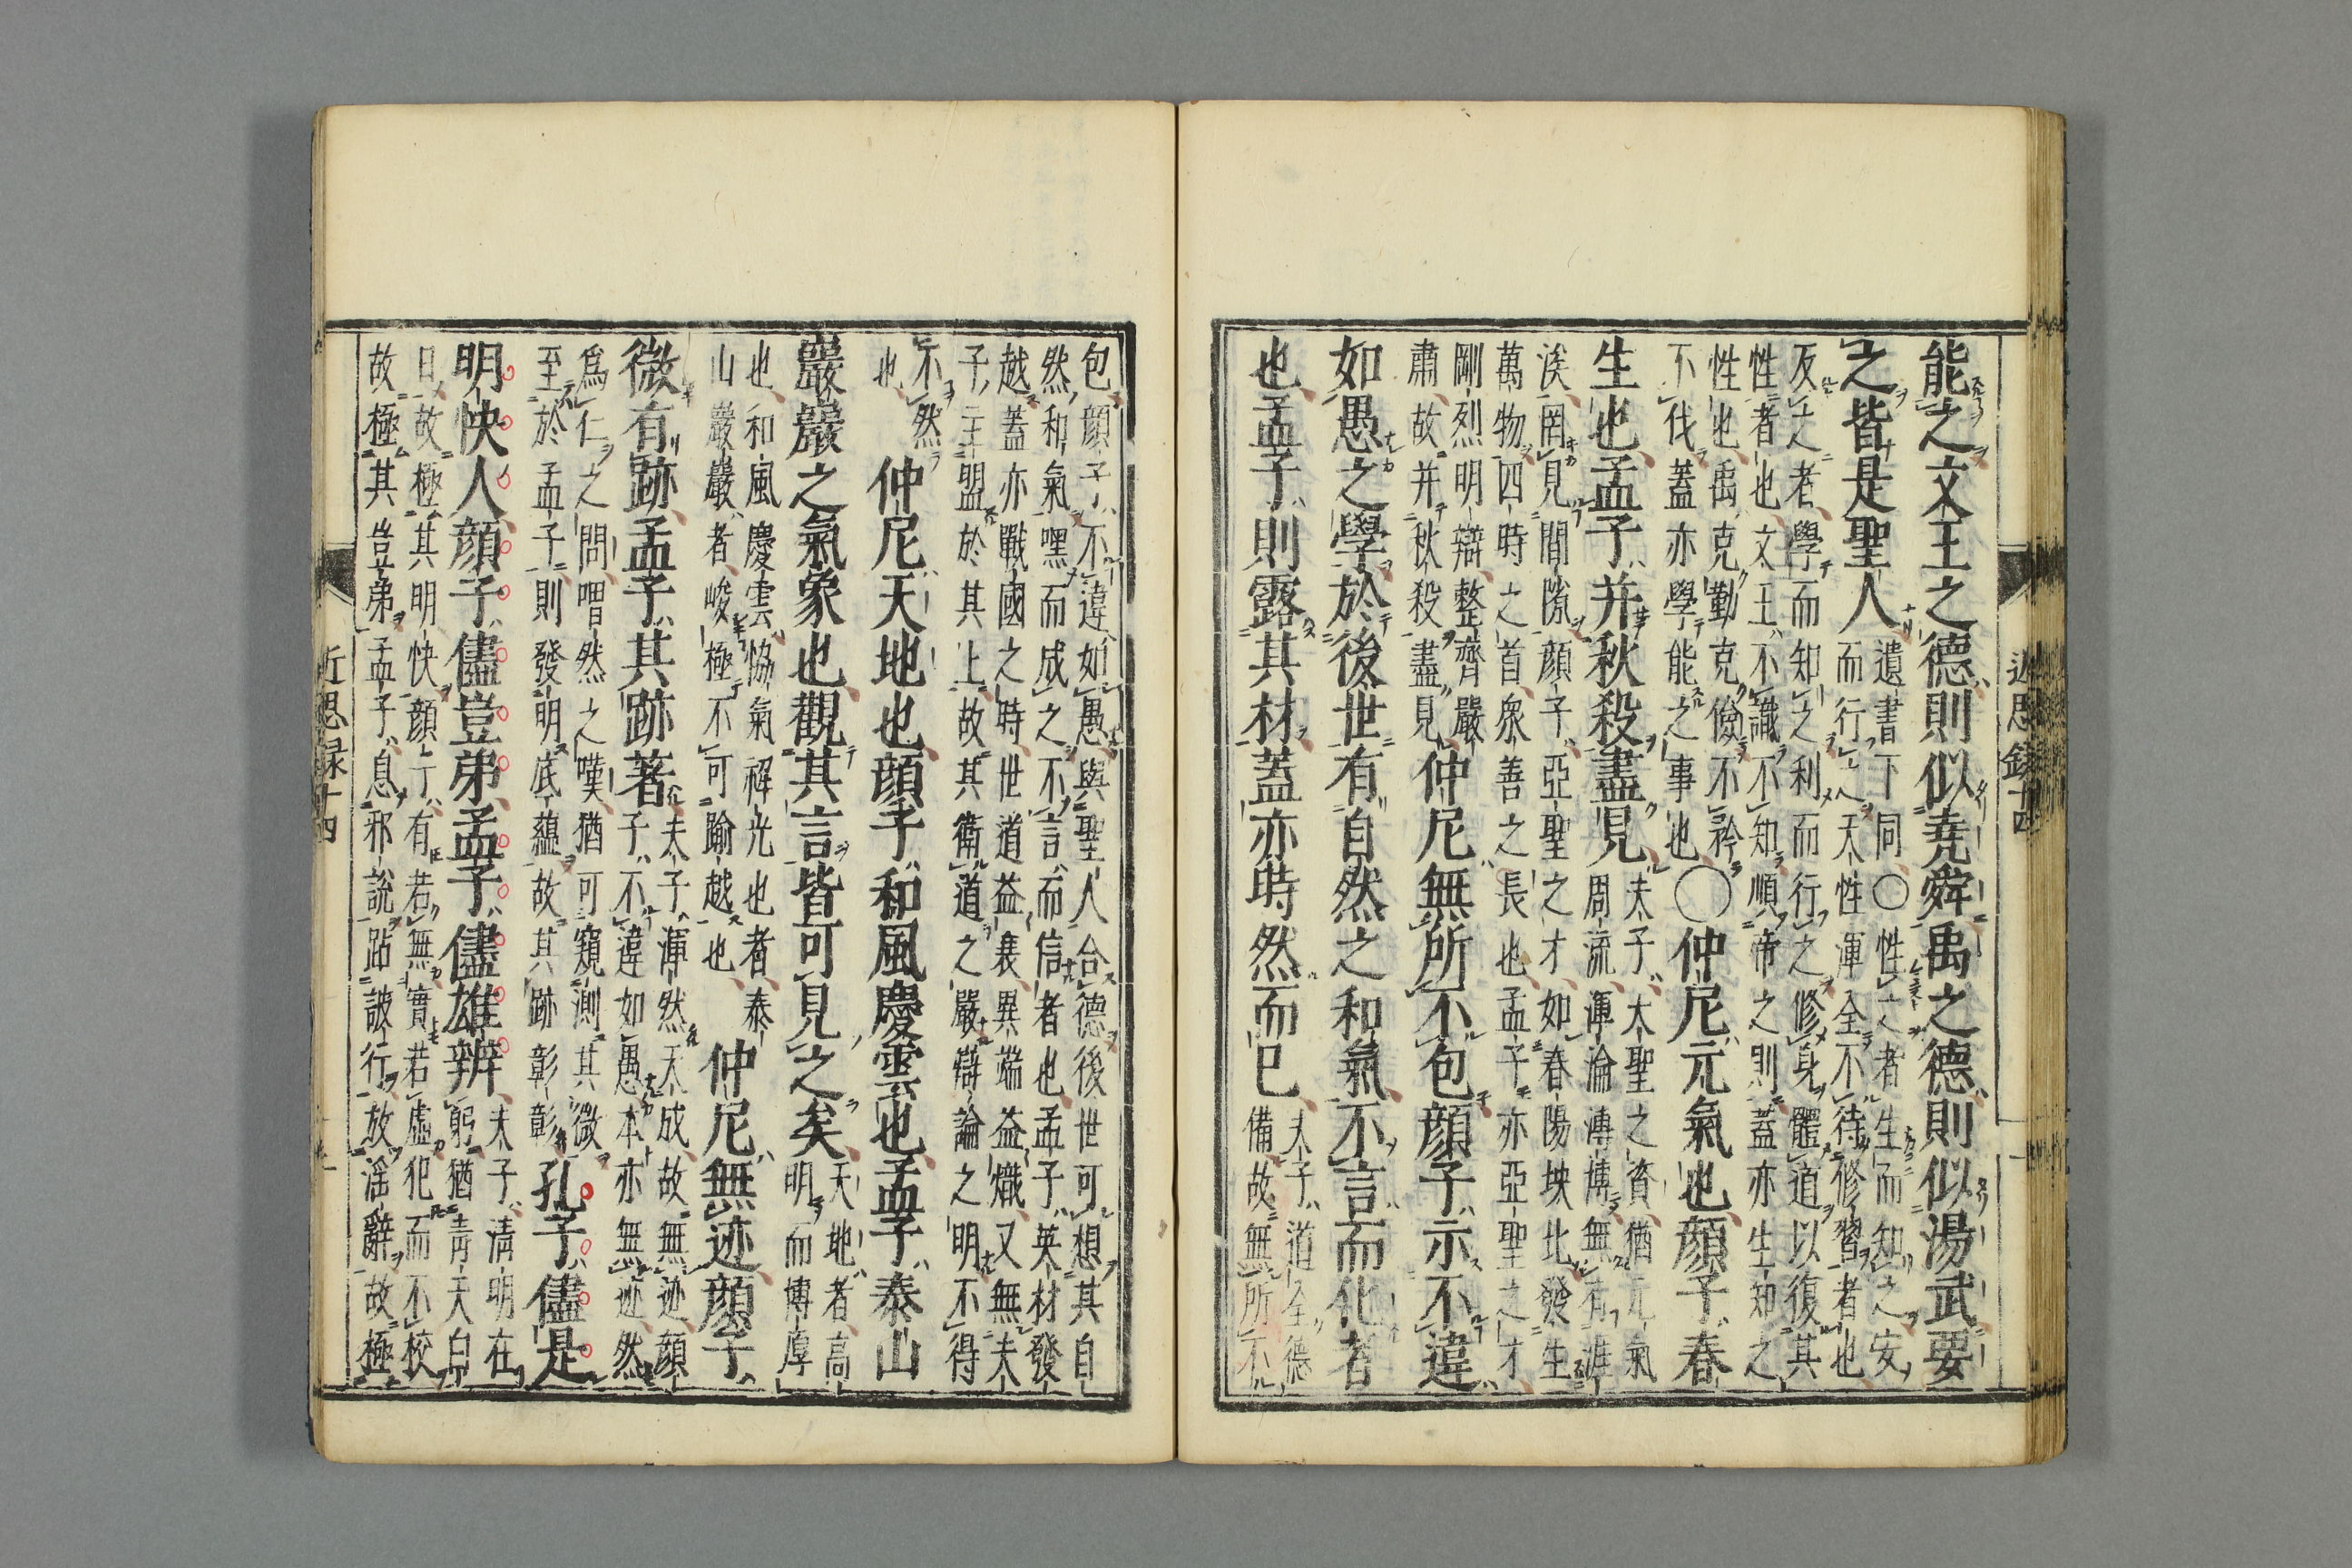 近思錄十四
能之文王之德則似堯舜禹之德則似湯武要
之皆是聖人
遺書下同〇性之者生而知之安
而行之天性渾全不待修習者也
反之者學而知之利而行之修身體道以復其
性者也文王不識不知順帝之則蓋亦生知之
性也禹克勤克儉不矜
不伐蓋亦學能之事也
〇仲尼元氣也顏子春
生也孟子并秋殺盡見
夫子大聖之資猶元氣
周流渾淪溥博無有涯
涘罔見間隙顏子亞聖之才如春陽坱北發生
萬物四時之首衆善之長也孟子亦亞聖之才
剛烈明辯整齊嚴
肅故并秋殺盡見
仲尼無所不包顏子示不違
如愚之學於後世有自然之和氣不言而化者
也孟子則露其材蓋亦時然而已
夫子道全德
備故無所不
包顏子不違如愚與聖人合德後世可想其自
然和氣嘿而成之不言而信者也孟子英材發
越蓋亦戰國之時世道益衰異端益熾又無夫
子主盟於其上故其衛道之嚴辯論之明不得
不然
也
仲尼天地也顏子和風慶雲也孟子泰山
巖巖之氣象也觀其言皆可見之矣
天地者高
明而博厚
也和風慶雲協氣祥光也者泰
山巖巖者峻極不可踰越也
仲尼無迹顏子
微有跡孟子其跡著
夫子渾然天成故無迹顏
子不違如愚本亦無迹然
爲仁之問喟然之嘆猶可窺測其微
至於孟子則發明底蘊故其跡彰彰
孔子儘是
明快人顏子儘豈弟孟子儘雄辨
夫子清明在
躬猶青天白
日故極其明快顏子有若無實若虛犯而不校
故極其豈弟孟子息邪說距詖行放淫辭故極
近思録十四